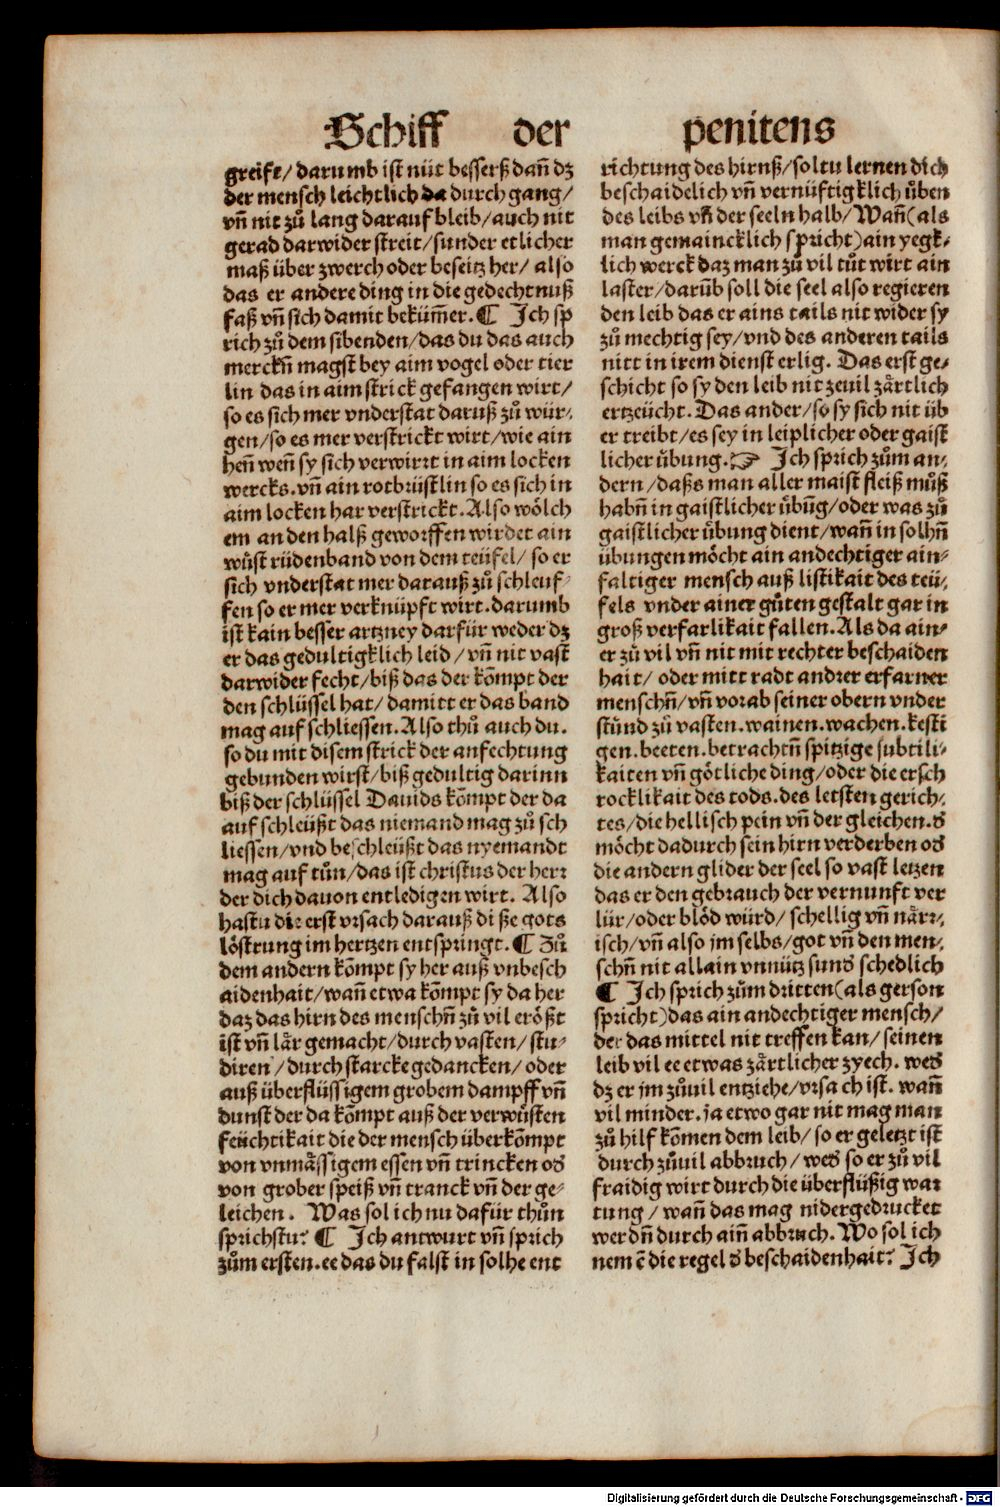 Schiff der penitens
greife/darumb ist nüt besserß dañ dz
der mensch leichtlich da durch gang/
vñ nit zů lang darauf bleib/auch nit
gerad darwider streit/sunder etlicher
maß über zwerch oder beseitz her/ also
das er andere ding in die gedechtnuß
faß vñ sich damit bekům̃er. ¶ Ich sp
rich zů dem sibenden/das du das auch
merckñ magst bey aim vogel oder tier
lin das in aim strick gefangen wirt/
so es sich mer vnderstat daruß zů wür⸗
gen/so es mer verstrickt wirt/wie ain
heñ weñ sy sich verwirrt in aim locken
wercks. vñ ain rotbrüstlin so es sich in
aim locken har verstrickt. Also wölch
em an den halß geworffen wirdet ain
wůst rüdenband von dem teüfel/ so er
sich vnderstat mer darauß zů schleuf⸗
fen so er mer verknüpft wirt. darumb
ist kain besser artzney darfür weder dz
er das gedultigklich leid/vñ nit vast
darwider fecht/biß das der kõmpt der
den schlüssel hat/ damitt er das band
mag auf schliessen. Also thů auch du.
so du mit disem strick der anfechtung
gebunden wirst/biß gedultig darinn
biß der schlüssel Dauids kõmpt der da
auf schleüßt das niemand mag zů sch
liessen/vnd beschleüßt das nyemandt
mag auf tůn/das ist christus der herr
der dich dauon entledigen wirt. Also
hastu die erst vrsach darauß di ße gots
löstrung im hertzen entspringt. ¶ Zů
dem andern kõmpt sy her auß vnbesch
aidenhait/wañ etwa kõmpt sy da her
daz das hirn des menschñ zů vil erößt
ist vñ lär gemacht/durch vasten/stu⸗
diren/durch starcke gedancken/oder
auß überflüssigem grobem dampff vñ
dunst der da kõmpt auß der verwůsten
feüchtikait die der mensch überkõmpt
von vnmässigem essen vñ trincken od
von grober speiß vñ tranck vñ der ge⸗
leichen. Was sol ich nu dafür thůn
sprichstu? ¶ Ich antwurt vñ sprich
zům ersten. ee das du falst in solhe ent
richtung des hirnß/soltu lernen dich
beschaidelich vñ vernüftigklich ůben
des leibs vñ der seeln halb/Wañ(als
man gemaincklich spricht)ain yegk⸗
lich werck daz man zů vil tůt wirt ain
laster/darũb soll die seel also regieren
den leib das er ains tails nit wider sy
zů mechtig sey/vnd des anderen tails
nitt in irem dienst erlig. Das erst ge⸗
schicht so sy den leib nit zeuil zärtlich
ertzeücht. Das ander/so sy sich nit üb
er treibt/es sey in leiplicher oder gaist
licher ůbung. ☞ Ich sprich zům an⸗
dern/daßs man aller maist fleiß můß
habñ in gaistlicher ůbũg/oder was zů
gaistlicher ůbung dient/wañ in solhñ
übungen möcht ain andechtiger ain⸗
faltiger mensch auß listikait des teü⸗
fels vnder ainer gůten gestalt gar in
groß verfarlikait fallen. Als da ain⸗
er zů vil vñ nit mit rechter beschaiden
hait/ oder mitt radt andrer erfarner
menschñ/vñ vorab seiner obern vnder
stůnd zů vasten. wainen. wachen. kesti
gen. beeten. betrachtñ spitzige subtili⸗
kaiten vñ götliche ding/oder die ersch
rocklikait des tods. des letsten gerich⸗
tes/die hellisch pein vñ der gleichen. d
möcht dadurch sein hirn verderben od
die andern glider der seel so vast letzen
das er den gebrauch der vernunft ver
lür/oder blöd würd/ schellig vñ närr⸗
isch/vñ also jm selbs/got vñ den men⸗
schñ nit allain vnnütz sund schedlich
¶ Ich sprich zům dritten(als gerson
spricht)das ain andechtiger mensch/
der das mittel nit treffen kan/ seinen
leib vil ee etwas zärtlicher zyech. wed
dz er jm zůuil entziehe/vrsach ist. wañ
vil minder. ja etwo gar nit mag man
zů hilf kõmen dem leib/ so er geletzt ist
durch zůuil abbruch/wed so er zů vil
fraidig wirt durch die überflüßig war
tung/ wañ das mag nidergedrucket
werdñ durch aiñ abbruch. Wo sol ich
nem̃ẽ die regel d beschaidenhait? Ich
Digitalisierung gefördert durch die Deutsche Forschungsgemeinschaft - DFG